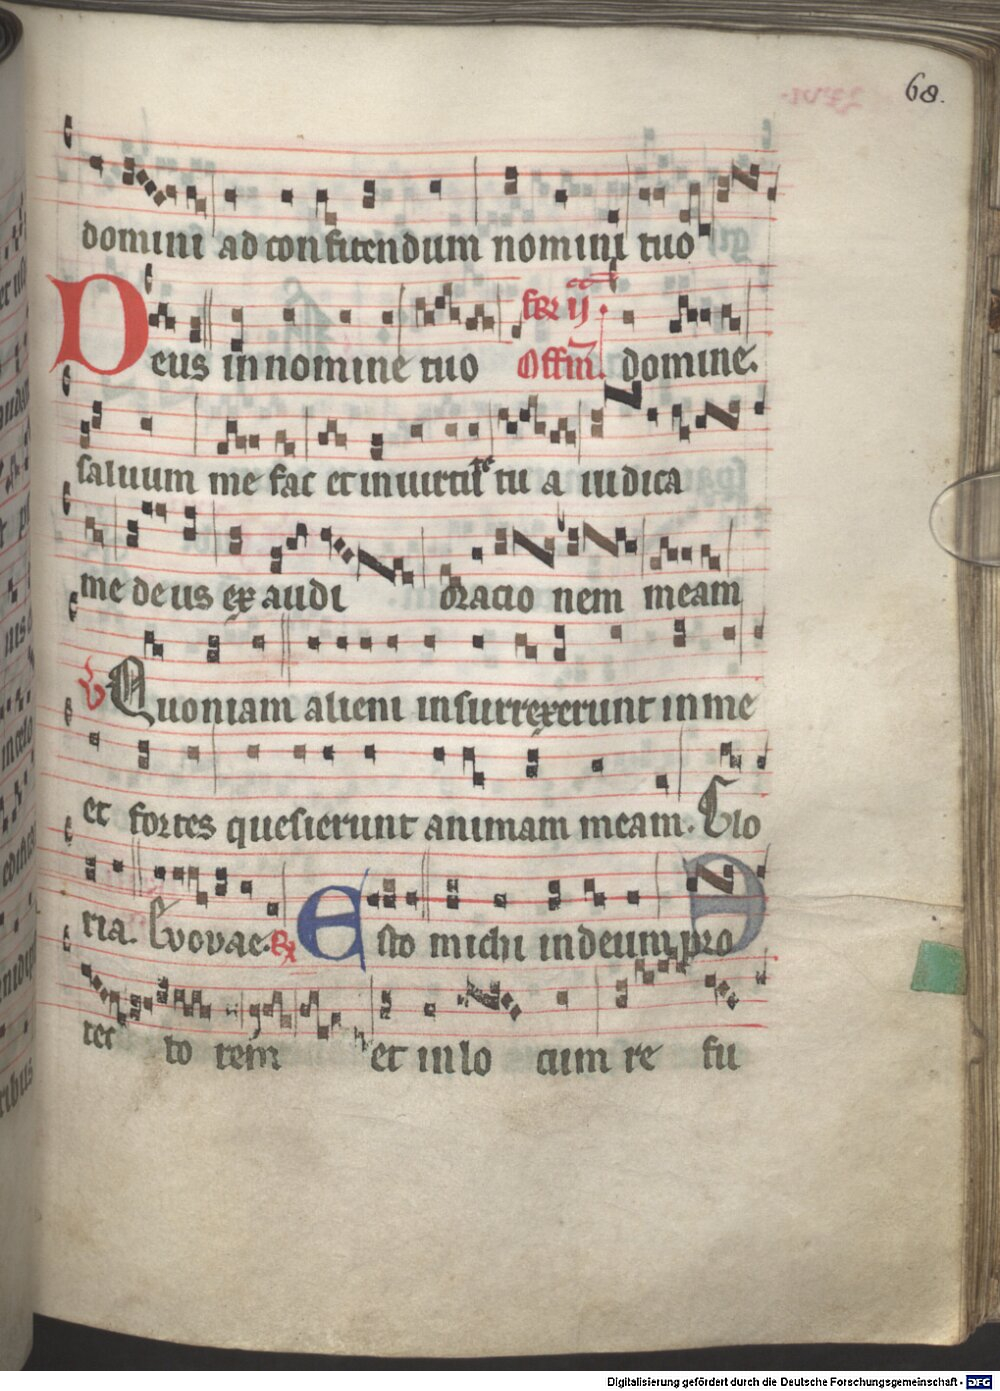 68.
domini ad confitendum nomini tuo
Deus in nomine tuo Offm. domine.
saluum me fac et in uirtute tu a iudica
me deus ex audi oracio nem meam
Quoniam alieni insurrexerunt in me
et fortes quesierunt animam meam. Glo
ria. Evovae. Esto michi in deum pro
tec to rem et in lo cum re fu
Digitalisierung gefördert durch die Deutsche Forschungsgemeinschaft - DFG